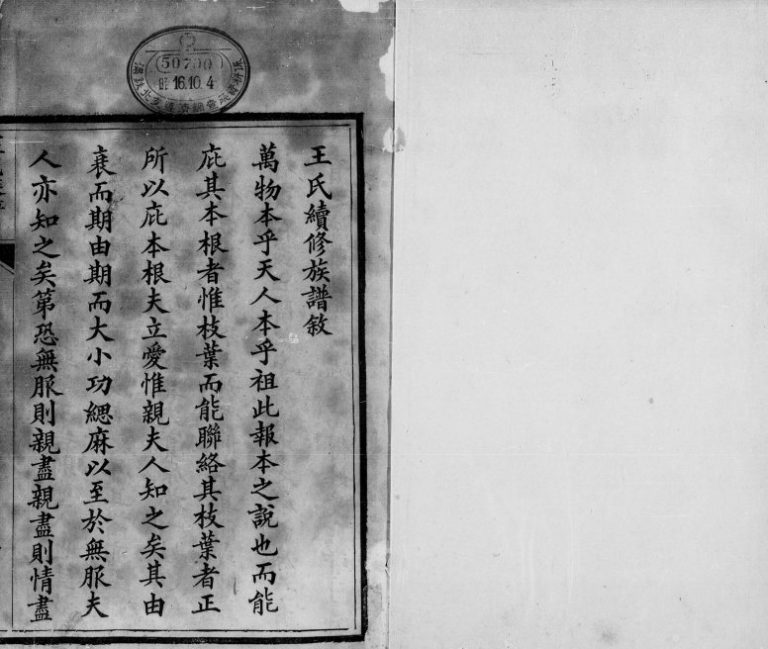 50700
昭 16.10.4
王氏續修族譜敘
萬物本乎天人本乎祖此報本之說也而能
庇其本根者惟枝葉而能聯絡其枝葉者正
所以庇本根夫立愛惟親夫人知之矣其由
衰而期由期而大小功緦麻以至於無服夫
人亦知之矣第恐無服則親盡親盡則情盡